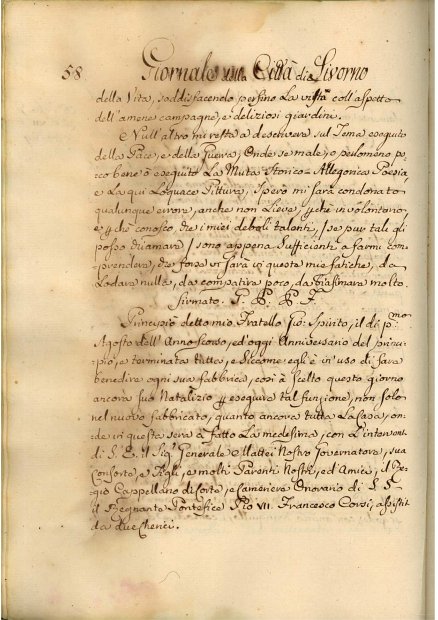 58
Giornale della Città di Livorno
della Vita, soddisfacendo persino La vista coll'aspetto
dell'amene campagne, e deliziosi giardini.
Null'altro mi resta a descriverà sul Tema eseguito
della Pace, e della Guerra, Onde se male, o perlomeno po,
co bene ò eseguito La Muta Storico=Allegorica Poesia
e La qui Loquace Pittura, Spero mi sarà condonato
qualunque errore, anche non Lieve, che involontario,
e conosco, che i miei deboli talenti, se pur tali gli
posso chiamare / sono appena sufficienti a farmi com=
prendere, che forse vi sarà in queste mie fatiche, da
Lodare nulla, da compatire poco, da biasimare molto.
firmato. G. B. R. F.
Principiò detto mio Fratello Gio: Spirito, il dì p.mo
Agosto dell'Anno scorso, ed oggi Anniversario del princi=
pio, e terminata tutta, e Siccome egli è in uso di fare
benedire ogni sua fabbrica, così à Scelto questo giorno
ancora suo Natalizio eseguire tal funzione, non solo
nel nuovo fabbricato, quanto ancora tutta La Casa, on=
de in questa sera à fatto La medesima, con L'intervento
di S. E. il Sig. Generale Mattei Nostro Governatore, sua
Consorte, e Figli, e molti Parenti Nostri, ed Amici, il
Cappellano di Corte, e Cameriere Onorario di S. S.
il Regnante Pontefice Pio VII. Francesco Corsi, assistit
da due Cherici.